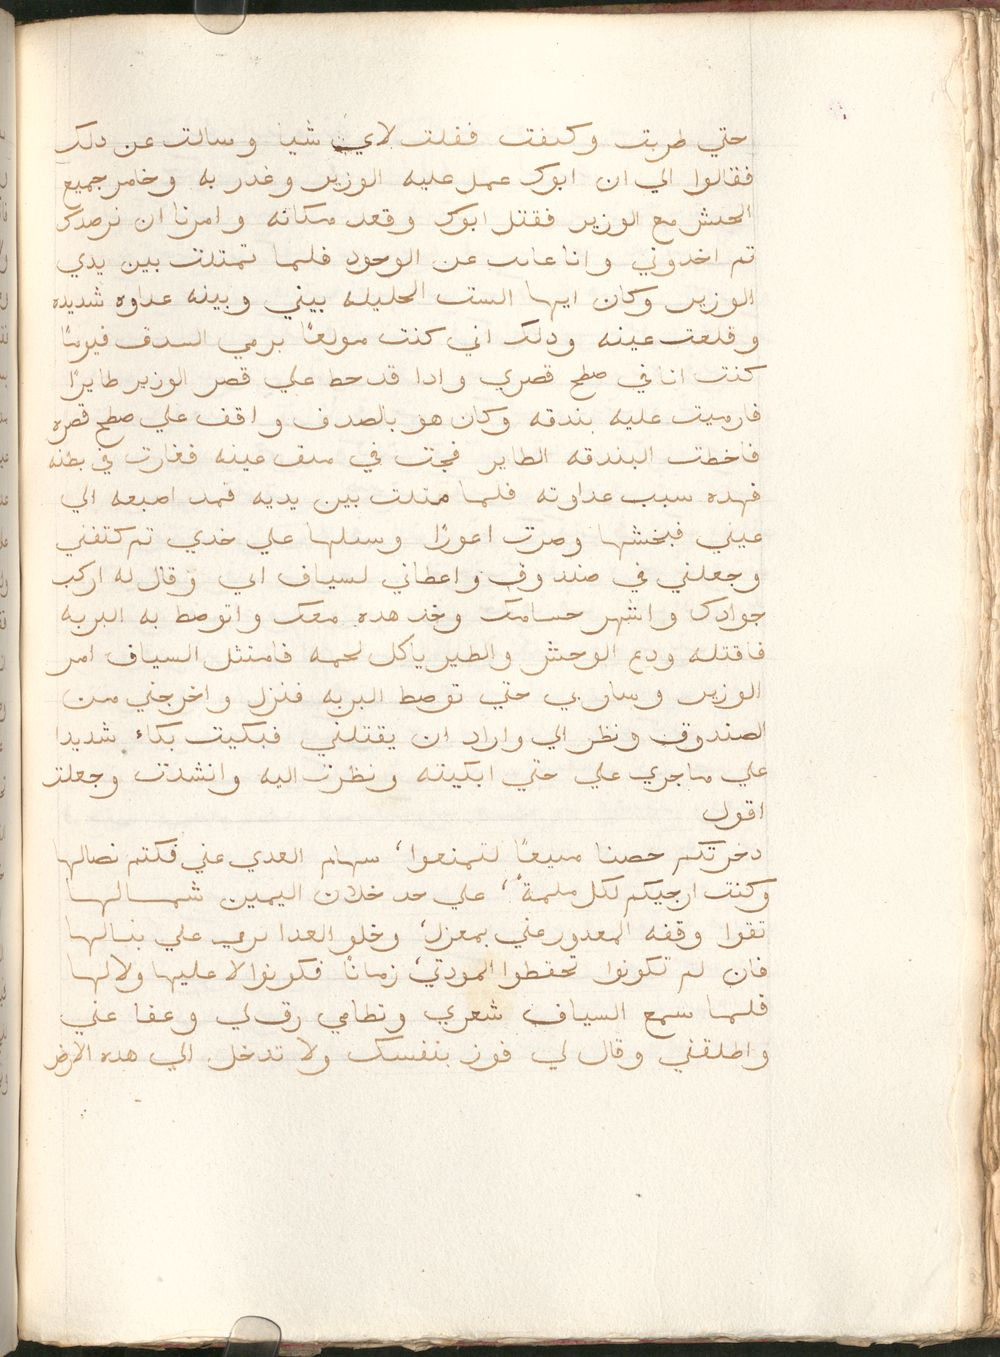 حتي ضربت وكتفت فقلت لاي شيا وسالت عن دلك
فقالوا الي ان ابوك عمل عليه الوزير وغدر به وخامر جميع
الحيش مع الوزير فقتل ابوك وقعد مكانه وامرنا ان نرصدك
تم اخدوني وانا غايب عن الوجود فلما تمتلت بين يدي
الوزير وكان ايها الست الجليله بيني وبينه عداوه شديده
وقلعت عينه ودلك اني كنت مولعًا برمي البندق فيومًا
كنت انا في صطح قصري وادا قد حط علي قصر الوزير طايرًا
فارميت عليه بندقه وكان هو بالصدف واقف علي صطح قصره
فاخطت البندقه الطاير فجت في عينه فغارت في بطنه
فهده سبب عداوته فلما متلت بين يديه فمد اصبعه الي
عيني فبخشها وصرت اعورًا وسيلها علي خدي تم كتفني
وجعلني في صندوق واعطاني لسياف ابي وقال له اركب
جوادك واشهر حسامك وخد هده معك واتوصط به البريه
فاقتله ودع الوحش والطير ياكل لحمه فامتثل السياف امر
الوزير وسار بي حتي توصط البريه فنزل واخرجني من
الصندوق ونظر الي واراد ان يقتلني فبكيت بكاء شديدا
علي ما جري علي حتي ابكيته ونظرت اليه وانشدت وجعلت
اقول
دخرتكم حصنا منيعًا لتمنعوا، سهام العدي عني فكنتم نصالها
وكنت ارجيكم لكل ملمةٌ، علي حد خلان اليمين شمالها
تقوا وقفه المعدور عني بمعزل، وخلو العدا ترمي علي بنبالها
فان لم تكونوا تحفظوا المودتي، زمانًا فكونوا لا عليها ولا لها
فلما سمع السياف شعري ونظامي رق لي وعفا عني
واطلقني وقال لي فوز بنفسك ولا تدخل الي هده الارض